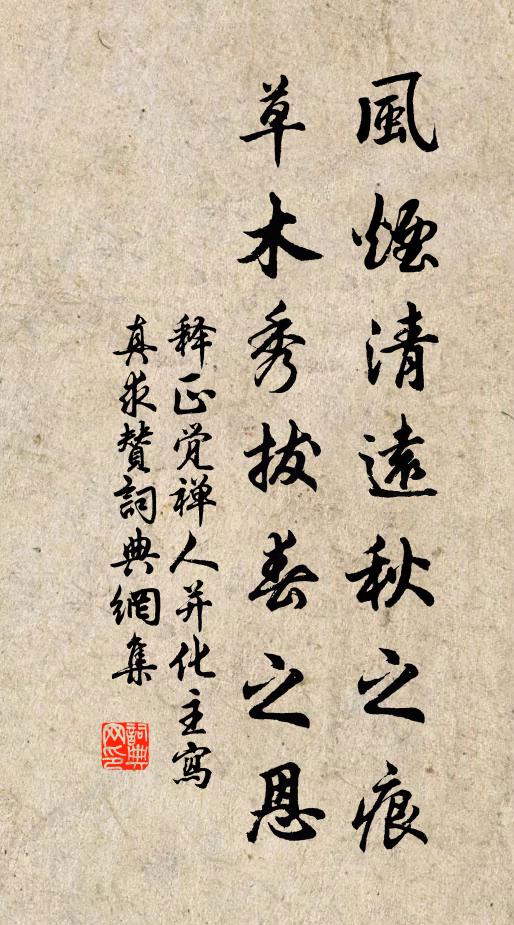 風煙清遠秋之痕
草木秀拔春之恩
释正觉禅人并化主寫
真求贊詞典網集
詞典网印